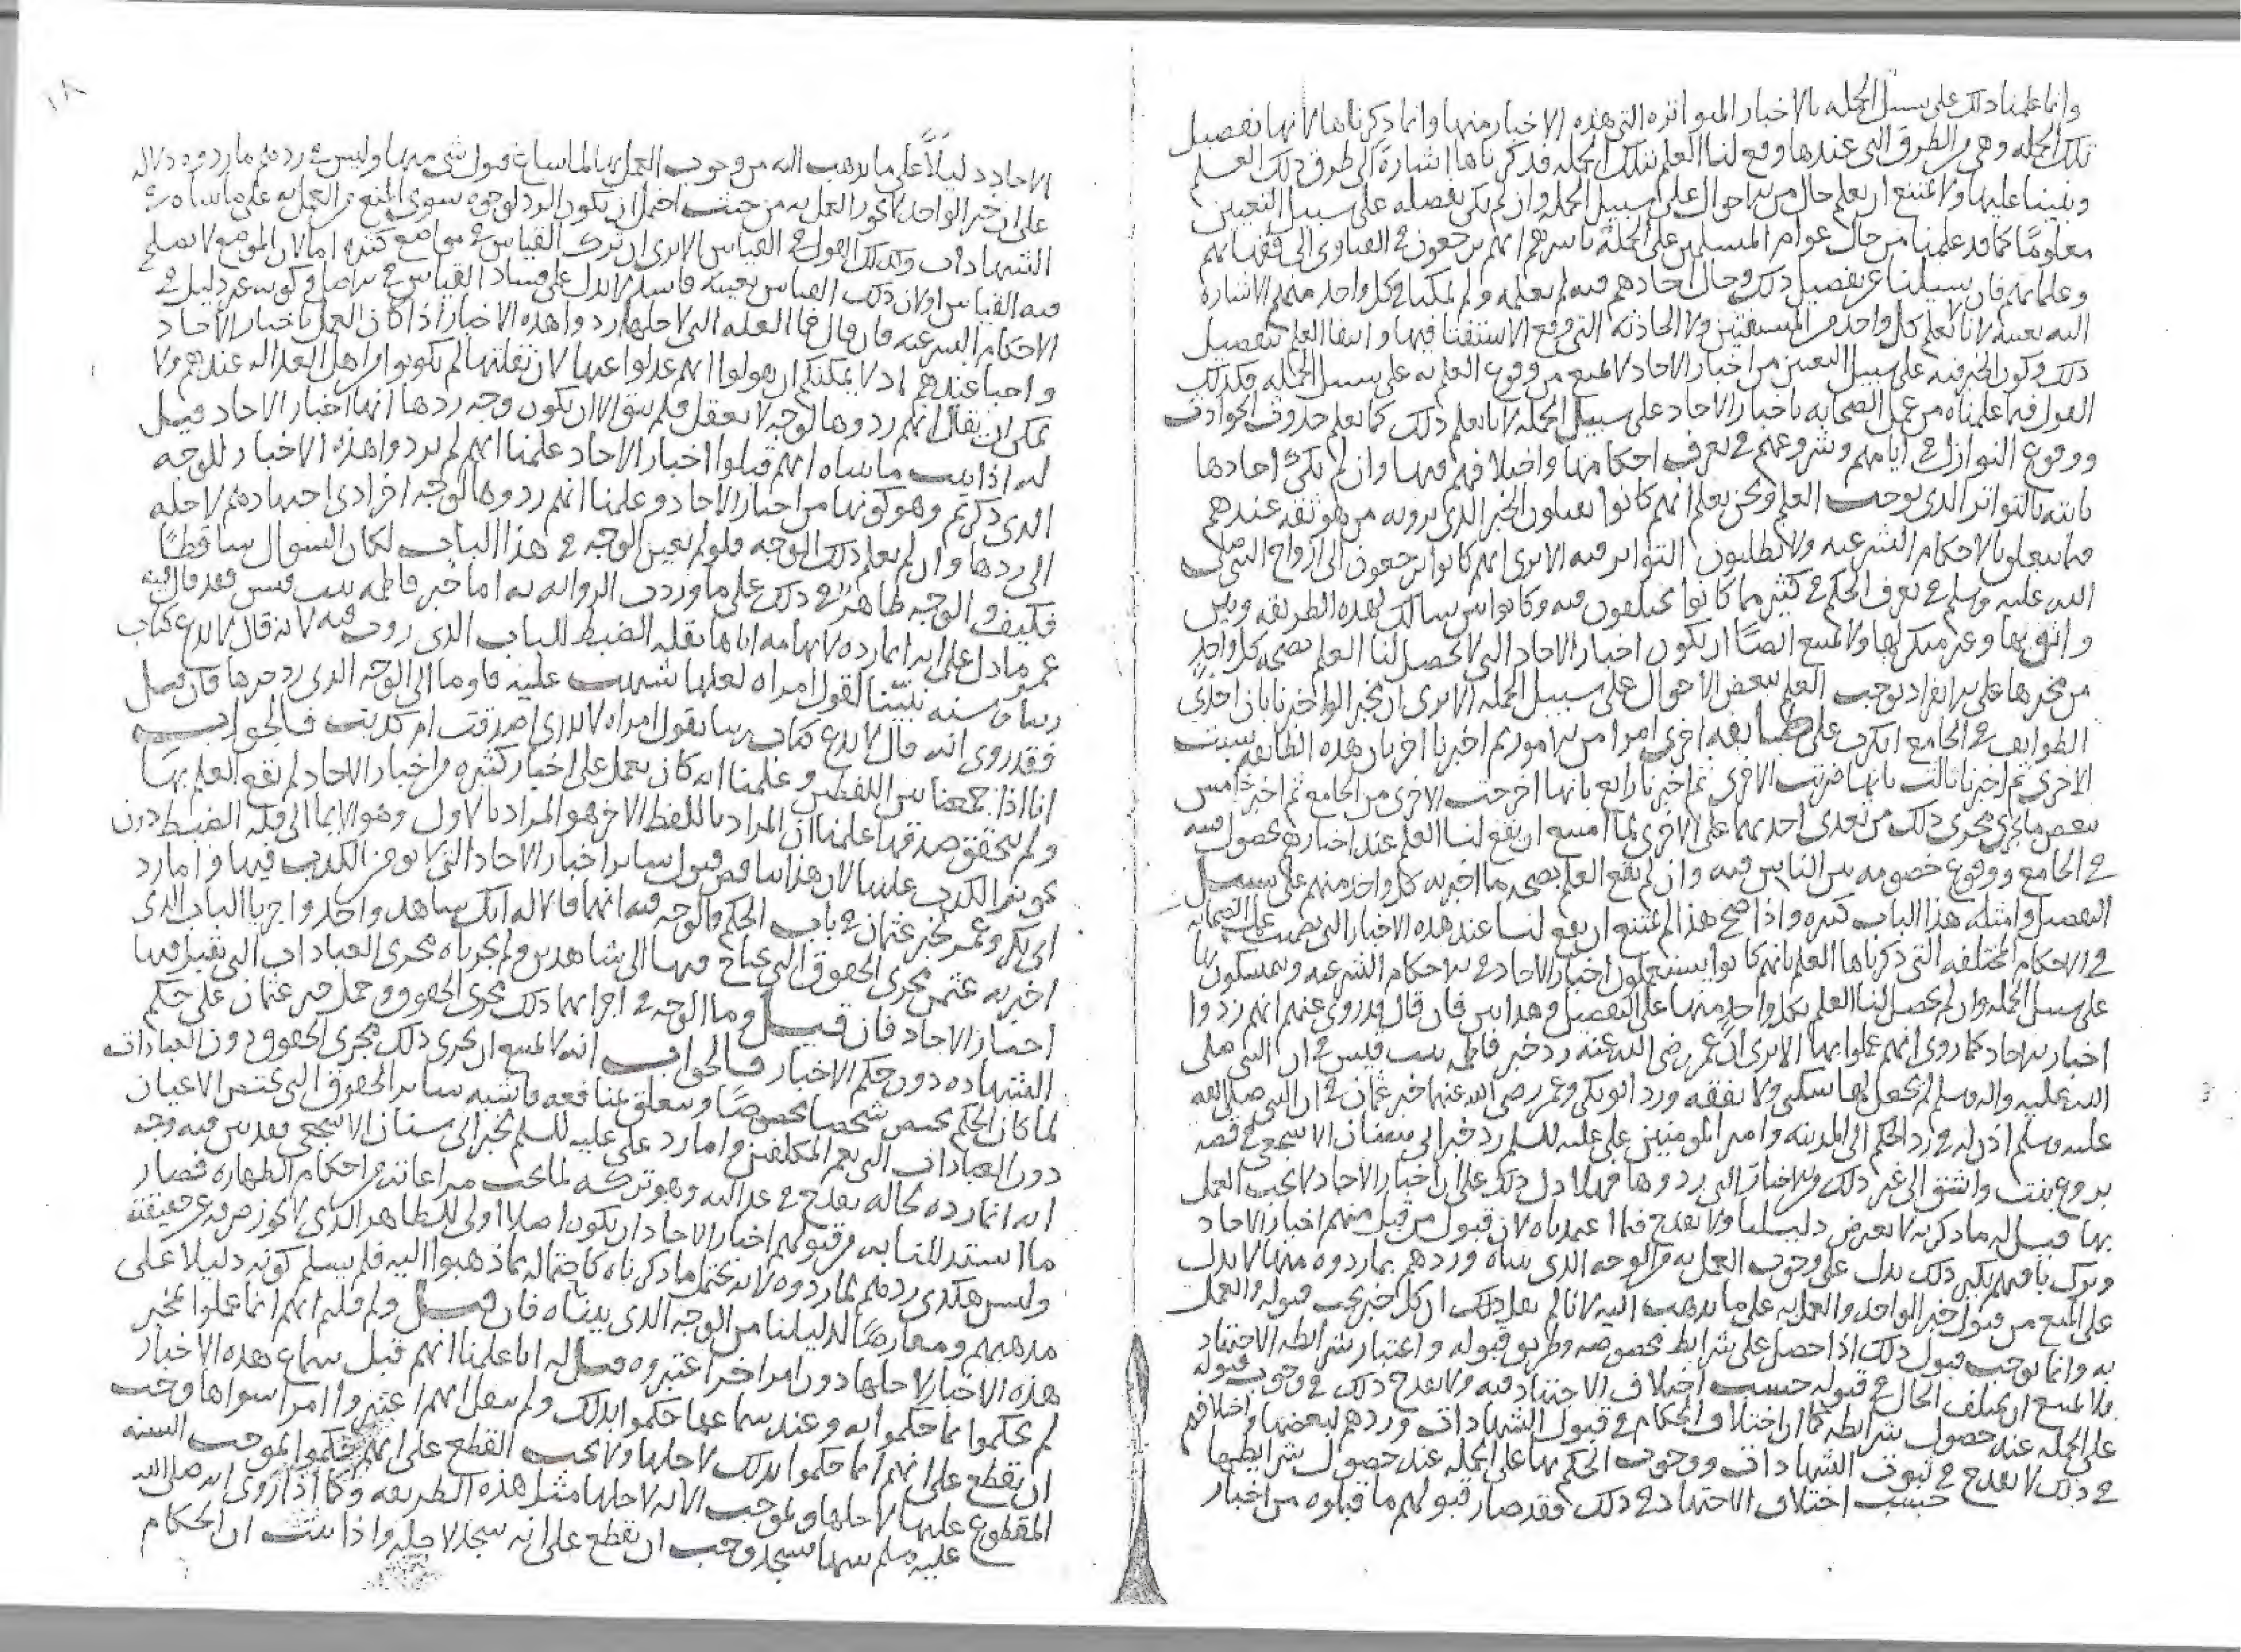 وانما علمنا ذلك على سبيل الجمله بالاخبار المتواتره التي هذه الاخبار منها وانما ذكرناها لانها تفصيل
تلك الجمله وهي من الطرق التي عندها وقع لنا العلم بتلك الجمله فذكرناها اشارة الى طرق ذلك العلم
وتنبيها عليها ولا يمتنع ان يعلم حال من الاحوال على سبيل الجمله وان لم يكن تفصيله على سبيل التعيين
معلومًا كما قد علمنا من حال عوام المسلمين على الجملة باسرهم انهم يرجعون في الفتاوى الى فقهائهم
وعلمائهم فان سبيلنا عن تفصيل ذلك وحال احادهم فيه لم نعلمه ولم يمكنا في كل واحد منهم الاشارة
اليه بعينه لانا لا نعلم كل واحد من المستفتين ولا الحادثه التي وقع الاستفتا فيها وانتفا العلم بتفصيل
ذلك وكون الخبر فيه على سبيل التعيين من اخبار الاحاد لا يمنع من وقوع العلم به على سبيل الجمله فكذلك
القول فيما علمناه من عمل الصحابه باخبار الاحاد على سبيل الجمله لانا نعلم ذلك كما نعلم حدوث الحوادث
ووقوع النوازل في ايامهم وشروعهم في تعرف احكامها واختلافهم فيها وان لم تكن احادها
ثابته بالتواتر الذي يوجب العلم ونحن نعلم انهم كانوا يقبلون الخبر الذي يرويه من هو ثقه عندهم
فيما يتعلق بالاحكام الشرعيه ولا يطلبون التواتر فيه الا ترى انهم كانوا يرجعون الى ازواج النبي صلى
الله عليه وسلم في تعرف الحكم في كثير مما كانوا يختلفون فيه وكانوا بين سالك لهذه الطريقه وبين
واثق بها وغير منكر لها ولا يمتنع ايضًا ان يكون اخبار الاحاد التي لا يحصل لنا العلم بصحة كل واحدٍ
من مخبرها على الانفراد توجب العلم ببعض الاحوال على سبيل الجمله الا ترى ان مخبرا لو اخبرنا بان احدى
الطوايف في الجامع انكرت على طايفه اخرى امرا من الامور ثم اخبرنا اخر بان هذه الطايفه سبت
الاخرى ثم اخبرنا ثالث بانها ضربت الاخرى ثم اخبرنا رابع بانها اخرجت الاخرى من الجامع ثم اخبر خامس
ببعض ما يجري مجرى ذلك من تعدي احديهما على الاخرى لما امتنع ان يقع لنا العلم عند اخبارهم بحصول فتنه
في الجامع ووقوع خصومه بين الناس فيه وان لم يقع العلم بصحه ما اخبر به كل واحد منهم على سبيل
التفصيل وامثله هذا الباب كثيره واذا صح هذا لم يمتنع ان يقع لنا عند هذه الاخبار التي تضمنت عمل الصحابه
في الاحكام المختلفه التي ذكرناها العلم بانهم كانوا يستعملون اخبار الاحاد في الاحكام الشرعيه ويتمسكون بها
على سبيل الجمله وان لم يحصل لنا العلم بكل واحد منها على التفصيل وهذا بين فان قال قد روي عنهم انهم ردوا
اخبار الاحاد كما روي انهم عملوا بها الا ترى ان عمر رضي الله عنه رد خبر فاطمه بنت قيس في ان النبي صلى
الله عليه واله وسلم لم يجعل لها سكنى ولا نفقه ورد ابو بكر وعمر رضي الله عنهما خبر عثمان في ان النبي صلى الله
عليه وسلم اذن له في رد الحكم الى المدينه وامير المومنين علي عليه السلم رد خبر ابي سنان الاشجعي في قصه
بروع بنت واشق الى غير ذلك من الاخبار التي ردوها فهلا دل ذلك على ان اخبار الاحاد لا يجب العمل
بها قيل له ما ذكرته لا يعرض دليلنا ولا يقدح فيما اعتمدناه لان قبول من قبل منهم اخبار الاحاد
وترك باقيهم نكير ذلك يدل على وجوب العمل به من الوجه الذي بيناه وردهم بما ردوه منها لا يدل
على المنع من قبول خبر الواحد والعمل به على ما نذهب اليه لانا لم نقل ذلك ان كل خبر يجب قبوله والعمل
به وانما نوجب قبول ذلك اذا حصل على شرايط مخصوصه وطريق قبوله واعتبار شرايطه الاجتهاد
فلا يمتنع ان يختلف الحال في قبوله حسب اختلاف الاجتهاد فيه ولا يقدح ذلك في وجوب قبوله
على الجمله عند حصول شرايطه كما ان اختلاف الحكام في قبول الشهادات وردهم لبعضها واختلافهم
في ذلك لا يقدح في ثبوت الشهادات ووجوب الحكم بها على الجمله عند حصول شرايطها
حسب اختلاف الاجتهاد في ذلك فقد صار قبولهم ما قبلوه من اخبار
١٨
الاحاد دليلاً على ما نذهب اليه من وجوب العمل بها لما ساغ قبول شي منها وليس في ردهم ما ردوه دلاله
على ان خبر الواحد لا يجوز العمل به من حيث احتمل ان يكون الرد لوجوه سوى المنع من العمل به على ما بيناه في
الشهادات وكذلك القول في القياس الا ترى ان ترك القياس في مواضع كثيره اما لان الموضع لا يصلح
فيه القياس او لان ذلك القياس بعينه فاسد لا يدل على فساد القياس في الاصل وكونه غير دليل في
الاحكام الشرعيه فان قال فما العله التي لاجلها ردوا هذه الاخبار اذا كان العمل باخبار الاحاد
واجبا عندهم اذ لا يمكنكم ان تقولوا انهم عدلوا عنها لان نقلتها لم يكونوا من اهل العداله عندهم ولا
يمكن ان يقال انهم ردوها لوجه لا يعقل فلم يبق الا ان يكون وجه ردها انها اخبار الاحاد قيل
له اذا ثبت ما بيناه انهم قبلوا اخبار الاحاد علمنا انهم لم يردوا هذه الاخبار للوجه
الذي ذكرتم وهو كونها من اخبار الاحاد وعلمنا انهم ردوها لوجه اخر ادى اجتهادهم لاجله
الى ردها وان لم نعلم ذلك الوجه فلو لم يتعين الوجه في هذا الباب لكان السوال ساقطًا
فكيف والوجه ظاهر في ذلك على ما وردت الروايه به اما خبر فاطمه بنت قيس فقد قال فيه
عمر ما دل على انه انما رده لاتهامه اياها بقله الضبط للباب الذي روت فيه لانه قال لا ندع كتاب
ربنا وسنه نبينا لقول امراه لعلها شبهت عليه فاوما الى الوجه الذي رد خبرها فان قيل
فقد روي انه قال لا ندع كتاب ربنا بقول امراه لا ندري اصدقت ام كذبت فالجواب
انا اذا جمعنا بين اللفظين وعلمنا انه كان يعمل على اخبار كثيره من اخبار الاحاد لم يقع العلم بها
ولم يتحقق صدقها علمنا ان المراد باللفظ الاخر هو المراد بالاول وهو الايما الى قله الضبط دون
تجويز الكذب عليها لان هذا يناقض قبول ساير اخبار الاحاد التي لا يومن الكذب فيها واما رد
ابي بكر وعمر لخبر عثمان في باب الحكم فالوجه فيه انهما قالا له انك شاهد واحد واجريا الباب الذي
اخبر به عثمن مجرى الحقوق التي يحتاج فيها الى شاهدين ولم يجرياه مجرى العبادات التي يقبل فيها
اخبار الاحاد فان قيل وما الوجه في اجرائهما ذلك مجرى الحقوق وحمل خبر عثمان على حكم
الشهاده دون حكم الاخبار فالجواب انه لا يمتنع ان يجرى ذلك مجرى الحقوق دون العبادات
لما كان الحكم يخص شخصا مخصوصًا ويتعلق بمنافعه فاشبه ساير الحقوق التي تختص الاعيان
دون العبادات التي تعم المكلفين واما رد علي عليه السلم لخبر ابي سنان الاشجعي فقد بين فيه وجه
انه انما رده لحاله تقدح في عدالته وهو تركه لما يجب مراعاته من احكام الطهاره فصار
ما استدللنا به من قبولهم اخبار الاحاد ان يكون اصلا اولى للظاهر الذي لا يجوز صرفه عن حقيقته
وليس هكذى ردهم لما ردوه لانه يحتمل ما ذكرناه كاحتماله لما ذهبوا اليه فلم يسلم كونه دليلا على
مذهبهم ومعارضًا لدليلنا من الوجه الذي بيناه فان قيل ولم قلتم انهم انما عملوا بخبر
هذه الاخبار لاجلها دون امر اخر اعتبروه قيل له انا علمنا انهم قبل سماع هذه الاخبار
لم يحكموا بما حكموا به وعند سماعها حكموا بذلك ولم ينقل انهم اعتبروا امرا سواها وجب
ان نقطع على انهم انما حكموا بذلك لاجلها ولا يجب القطع على انهم حكموا بموجب السنه
المقطوع عليها لاجلها وبموجب الايه لاجلها مثل هذه الطريقه وكما اذا روي انه صلى الله
عليه وسلم سها فسجد وجب ان نقطع على انه سجد لاجله واذا ثبت ان الحكام